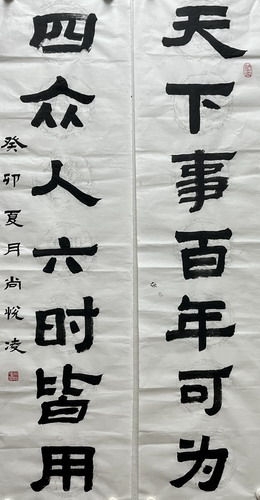 天下事百年可为
四众人六时皆用
癸卯夏月尚悦凌